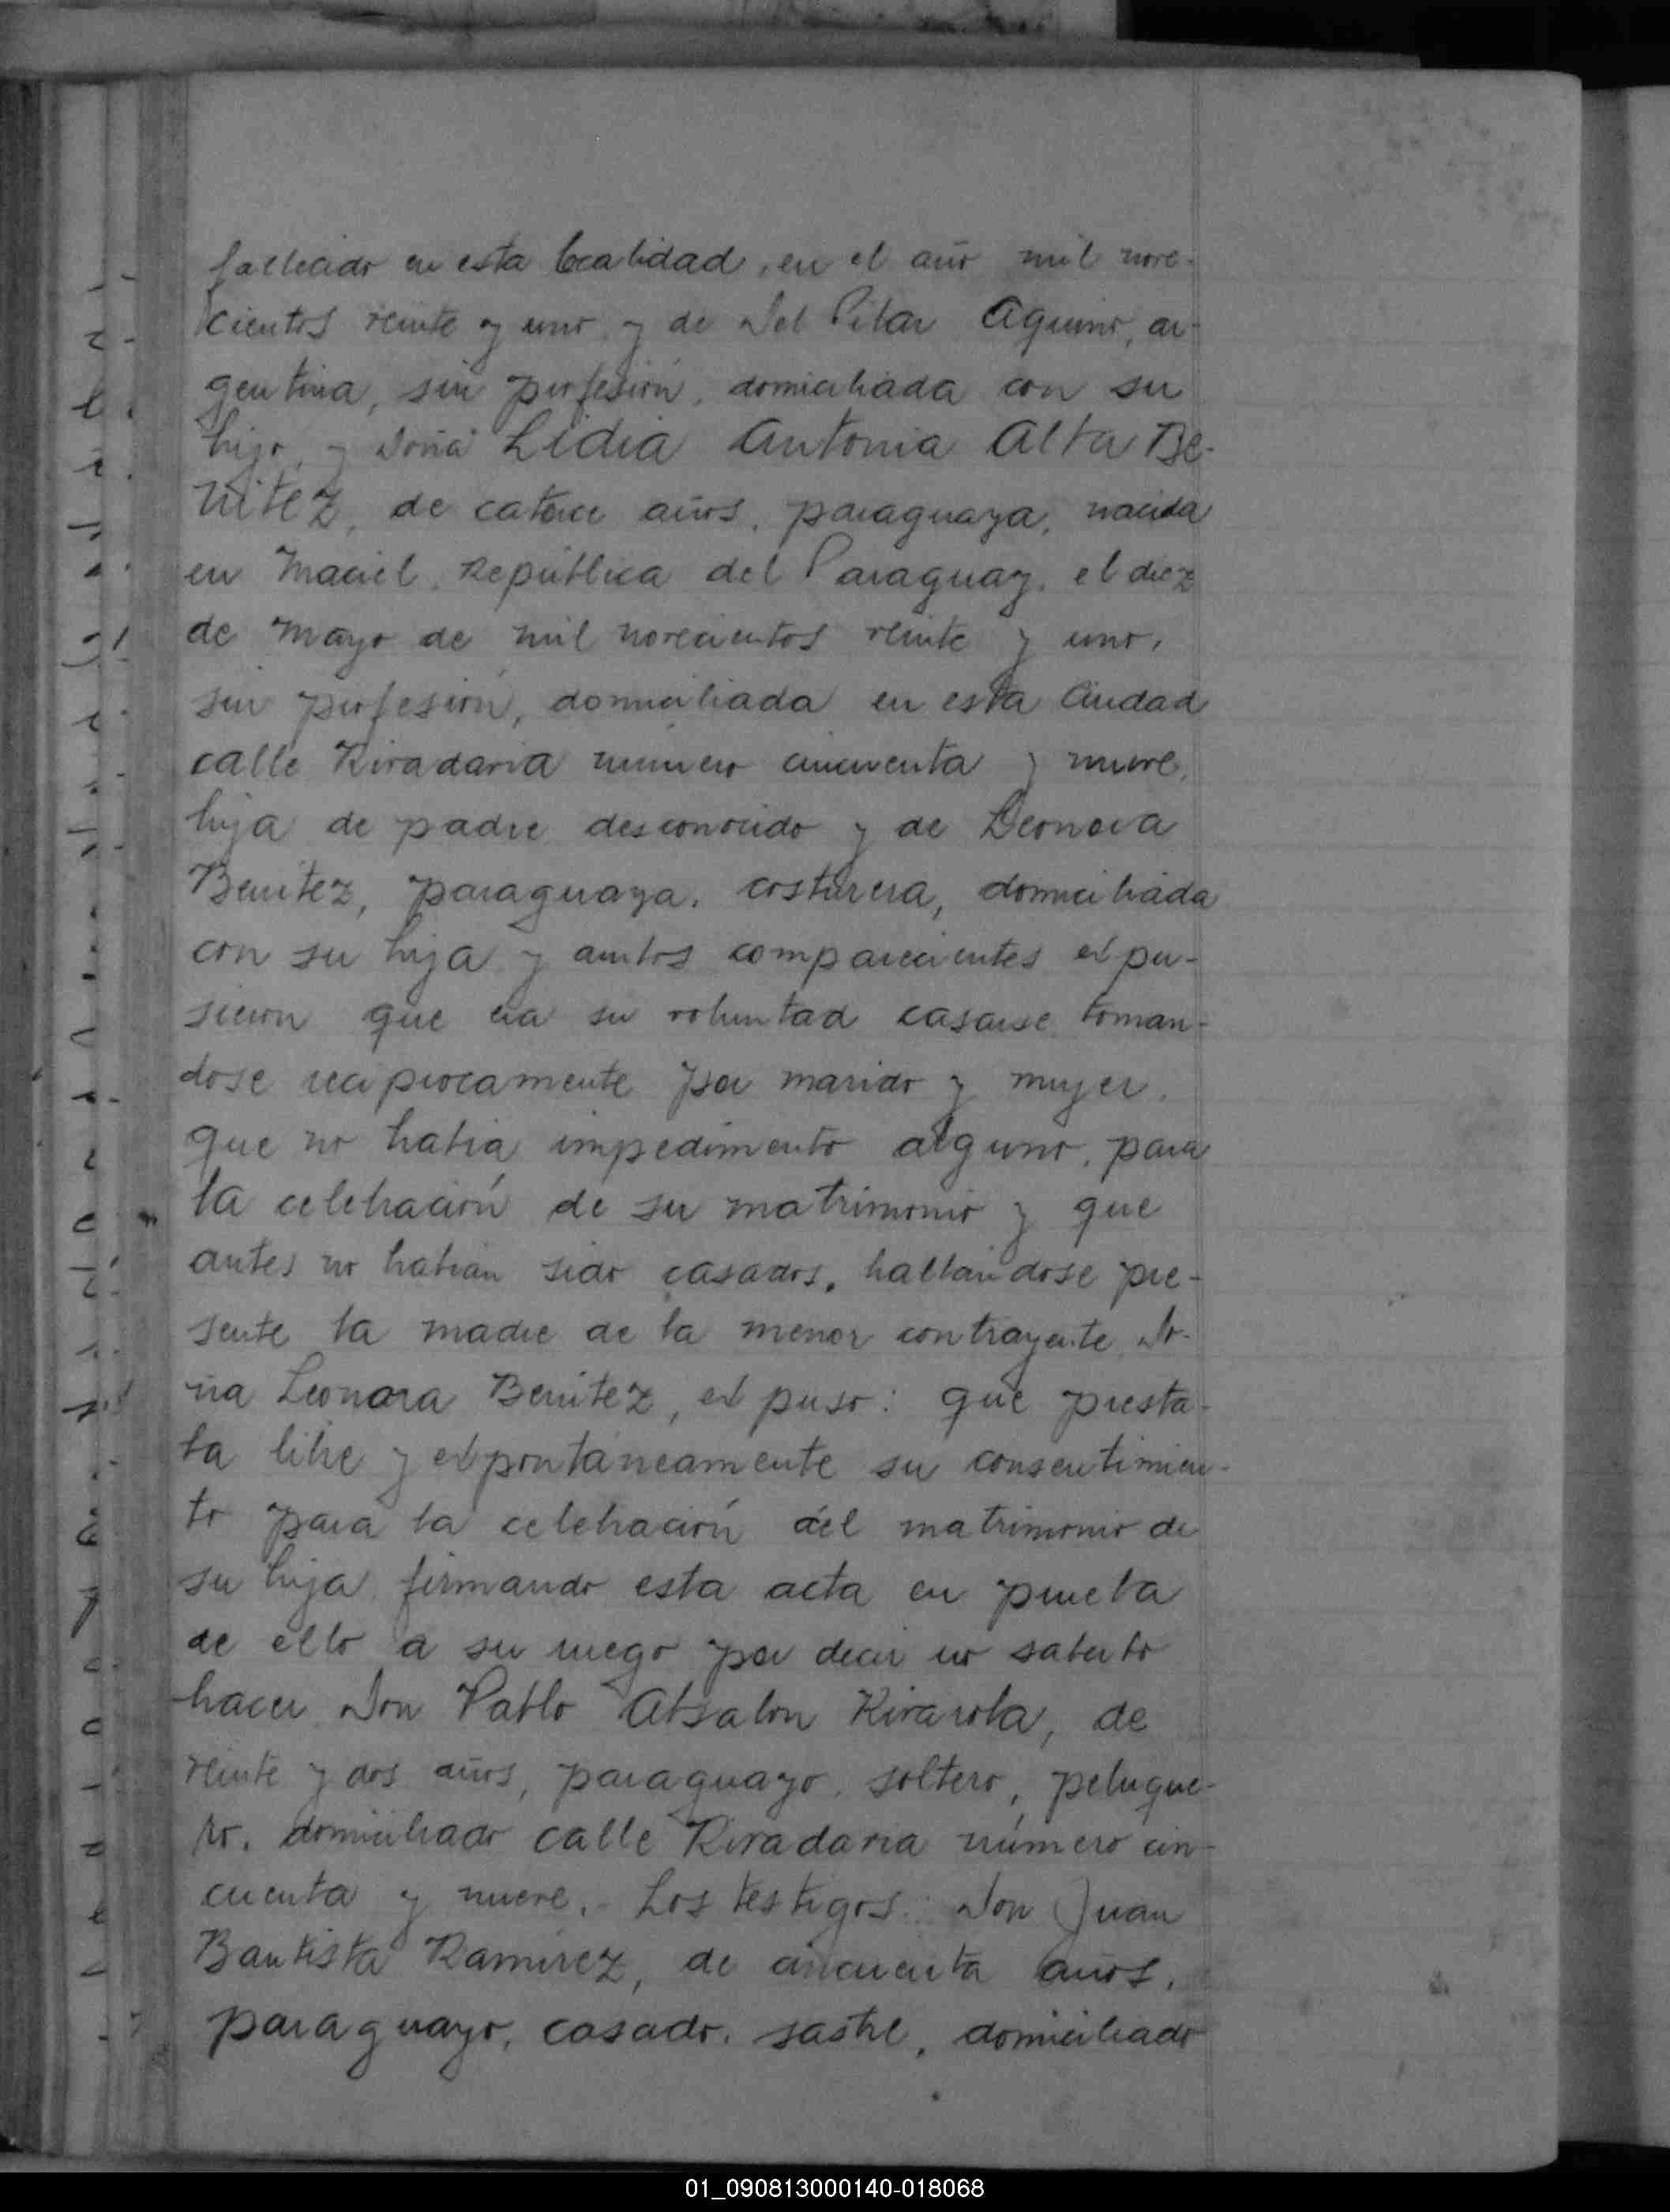 fallecido en esta localidad, en el año mil nove-
cientos veinte y uno y de Del Pilar Aquino, ar-
gentina, sin profesión, domiciliada con su
hijo, y Doña Lidia Antonia Alta Be-
nitez, de catorce años, paraguaya, nacida
en Maciel, República del Paraguay, el diez
de Mayo de mil novecientos veinte y uno,
sin profesión, domiciliada en esta Ciudad
calle Rivadavia número cincuenta y nueve,
hija de padre desconocido y de Leonora
Benitez, paraguaya, costurera, domiciliada
con su hija y ambos comparecientes expu-
sieron que era su voluntad casarse toman-
dose reciprocamente por marido y mujer,
que no habia impedimento alguno, para
la celebración de su matrimonio y que
antes no habian sido casados, hallandose pre-
sente la madre de la menor contrayente Do-
ña Leonora Benitez, expuso: que presta-
ba libre y expontáneamente su consentimien-
to para la celebración del matrimonio de
su hija firmando esta acta en prueba
de ello a su ruego por decir no saberlo
hacer Don Pablo Absalon Rivarola, de
veinte y dos años, paraguayo, soltero, peluque-
ro, domiciliado calle Rivadavia número cin-
cuenta y nueve.- Los testigos: Don Juan
Bautista Ramirez, de cincuenta años,
paraguayo, casado, sastre, domiciliado
01_090813000140-018068